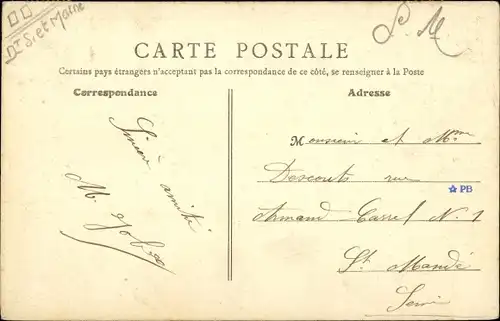 Dt S. et Marne
S. M.
CARTE POSTALE
Certains pays étrangers n'acceptant pas la correspondance de ce côté, se renseigner à la Poste
Correspondance
Adresse
Sincère amitié
M.
Monsieur et Mme
Descouts rue
Armand Carrel N. 1
St. Mandé
Seine
PB